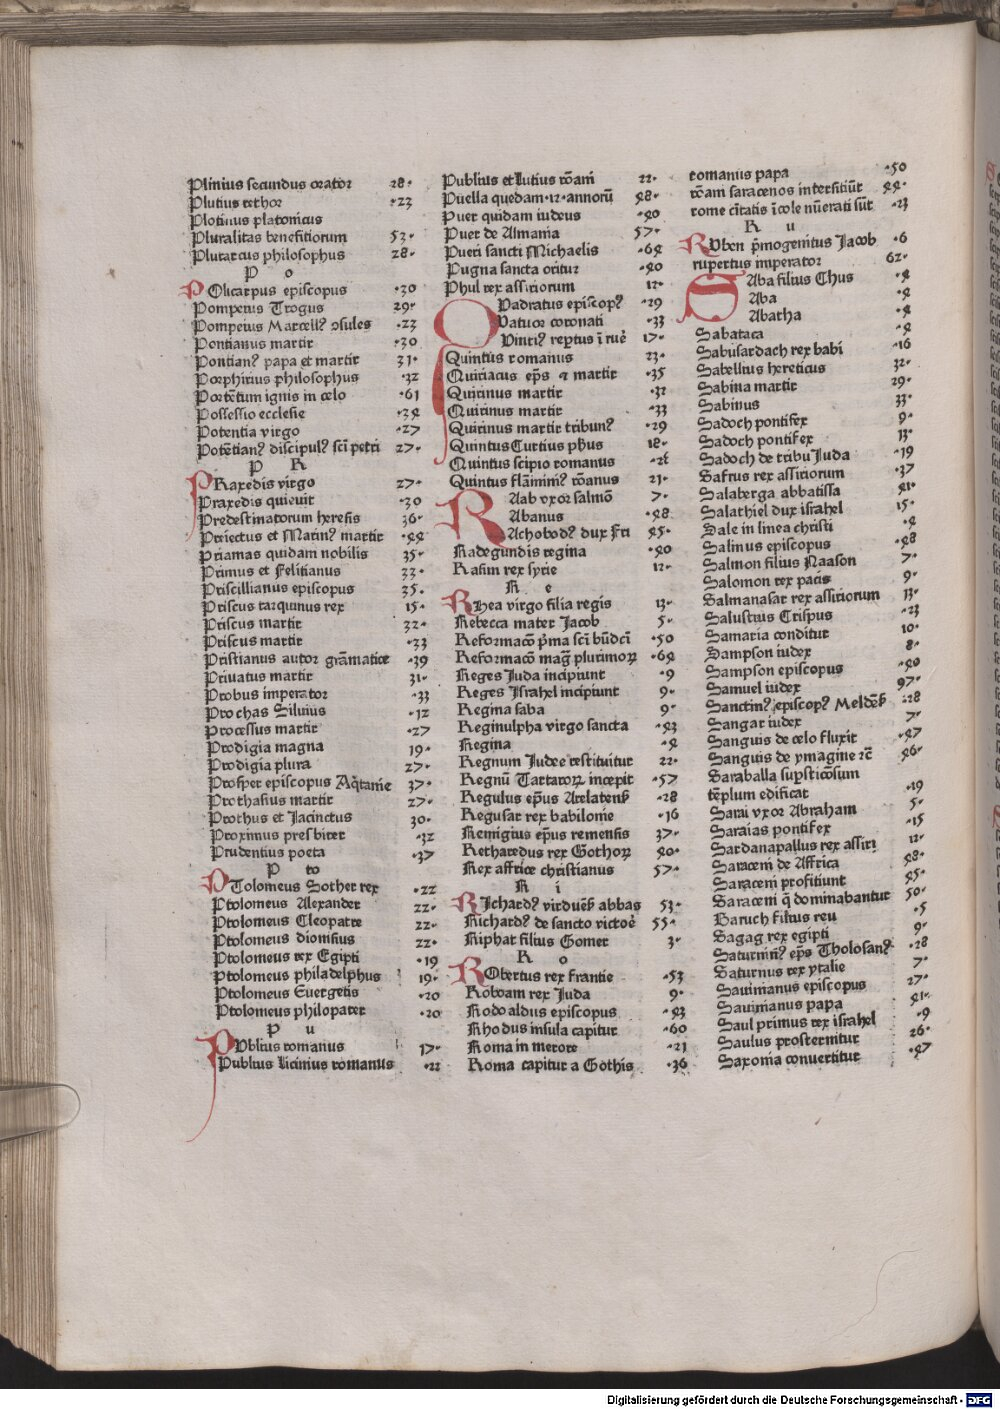 Plinius secundus orator 28·
Plutius rethor ·23
Plotinus platonicus
Pluralitas beneficiorum 53·
Plutarcus philosophus 28·
P o
POlicarpus episcopus ·30
Pompeius Trogus 29·
Pompeius Marcellꝰ ↄsules ·23
Pontianus martir ·30
Pontianꝰ papa et martir 31·
Porphirius philosophus ·32
Portētum ignis in celo ·61
Possessio ecclesie ·34
Potentia virgo ·27
Potētianꝰ discipulꝰ scī petri 27·
P R
PRaxedis virgo 27·
Praxedis quieuit ·30
Predestinatorum heresis 36·
Proiectus et Marinꝰ martir ·44
Priamas quidam nobilis 35·
Primus et Felicianus 33·
Priscillianus episcopus 35·
Priscus tarquinus rex 15·
Priscus martir 32·
Priscus martir ·33
Pristianus autor grāmatice ·39
Priuatus martir 31·
Probus imperator ·33
Prochas Siluius ·12
Processus martir ·27
Prodigia magna 19·
Prodigia plura 27·
Prosper episcopus Aq̄tanie 37·
Prothasius martir 27·
Prothus et Jacinctus 30·
Proximus presbiter ·32
Prudentius poeta ·37
P to
PTolomeus Sother rex ·22
Ptolomeus Alexander 22·
Ptolomeus Cleopatre 22·
Ptolomeus dionisius 22·
Ptolomeus rex Egipti ·19
Ptolomeus philadelphus 19·
Ptolomeus Euergetis ·20
Ptolomeus philopater ·20
P u
PVblius romanus 17·
Publius licinius romanus ·22
Publius et lutius rōani 22·
Puella quedam·12·annorū 48·
Puer quidam iudeus ·40
Puer de Almania 57·
Pueri sancti Michaelis ·64
Pugna sancta oritur ·40
Phul rex assiriorum 12·
QVadratus episcopꝰ ·29
Vatuor coronati ·33
Vintiꝰ reptus ī rue 17·
Quintus romanus 23·
Quiriacus ep̄s et martir ·35
Quirinus martir ·32
Quirinus martir ·33
Quirinus martir tribunꝰ ·29
Quintus Curtius ph̄us 18·
Quintus scipio romanus ·21
Quintus flāminiꝰ rōanus 21·
RAab vxor salmō 7·
Abanus ·48
Achobodꝰ dux Fri 45·
Radegundis regina ·40
Rasin rex syrie 12·
R e
RHea virgo filia regis 13·
Rebecca mater Jacob 5·
Reformacō p̄ma scī būdcī ·50
Reformacō magꝰ plurimoꝝ ·64
Reges Juda incipiunt ·9
Reges Israhel incipiunt 9·
Regina saba 9·
Reginulpha virgo sancta ·43
Regina ·4
Regnum Judee restituitur 22·
Regnū Tartaroꝝ incepit ·57
Regulus ep̄us Arelatens̄ ·28
Regusar rex babilonie ·16
Remigius ep̄us remensis 37·
Retharedus rex Gothoꝝ 40·
Rex affrice christianus 57·
R i
RJchardꝰ virduēs̄ abbas 53·
Richardꝰ de sancto victoē 55·
Riphat filius Gomer 3·
R o
RObertus rex francie ·53
Roboam rex Juda 9·
Rodoaldus episcopus ·43
Rhodus insula capitur ·60
Roma in merore ·21
Roma capitur a Gothis ·36
romanus papa ·50
rōam saracenos intersiciūt 44·
rome cīitatis īcole nūerati sūt ·23
R u
RVben p̄mogenitus Jacob ·6
rupertus imperator 62·
SAba filius Chus ·4
Aba ·4
Abatha ·4
Sabataca ·4
Sabusardach rex babi ·16
Sabellius hereticus 32·
Sabina martir 29·
Sabinus 33·
Sadoch pontifex 9·
Sadoch pontifex 13·
Sadoch de tribu Juda ·19
Safrus rex assiriorum ·37
Salaberga abbatissa 41·
Salathiel dux israhel 15·
Sale in linea christi ·4
Salinus episcopus ·48
Salmon filius Naason 7·
Salomon rex pacis 9·
Salmanasar rex assiriorum 13·
Salustius Crispus ·23
Samaria conditur 10·
Sampson iudex 8·
Sampson episcopus ·40
Samuel iudex 97·
Sanctinꝰ episcopꝰ Meldēs̄ ·28
Sangar iudex 7·
Sanguis de celo fluxit ·47
Sanguis de ymagine rc̄ 46·
Saraballa supsticōsum
tēplum edificat ·19
Sarai vxor Abraham 5·
Saraias pontifex ·15
Sardanapallus rex assiri 12·
Saraceni de Affrica 48·
Saraceni proficiunt 45·
Saraceni q̄ dominabantur 50·
Baruch filius reu ·5
Sagag rex egipti 9·
Saturninꝰ ep̄s Tholosanꝰ ·28
Saturnus rex ytalie 7·
Sauinianus episcopus 27·
Sauinianus papa 41·
Saul primus rex israhel ·9
Saulus prosternitur 26·
Saxonia conuertitur ·47
Digitalisierung gefördert durch die Deutsche Forschungsgemeinschaft - DFG